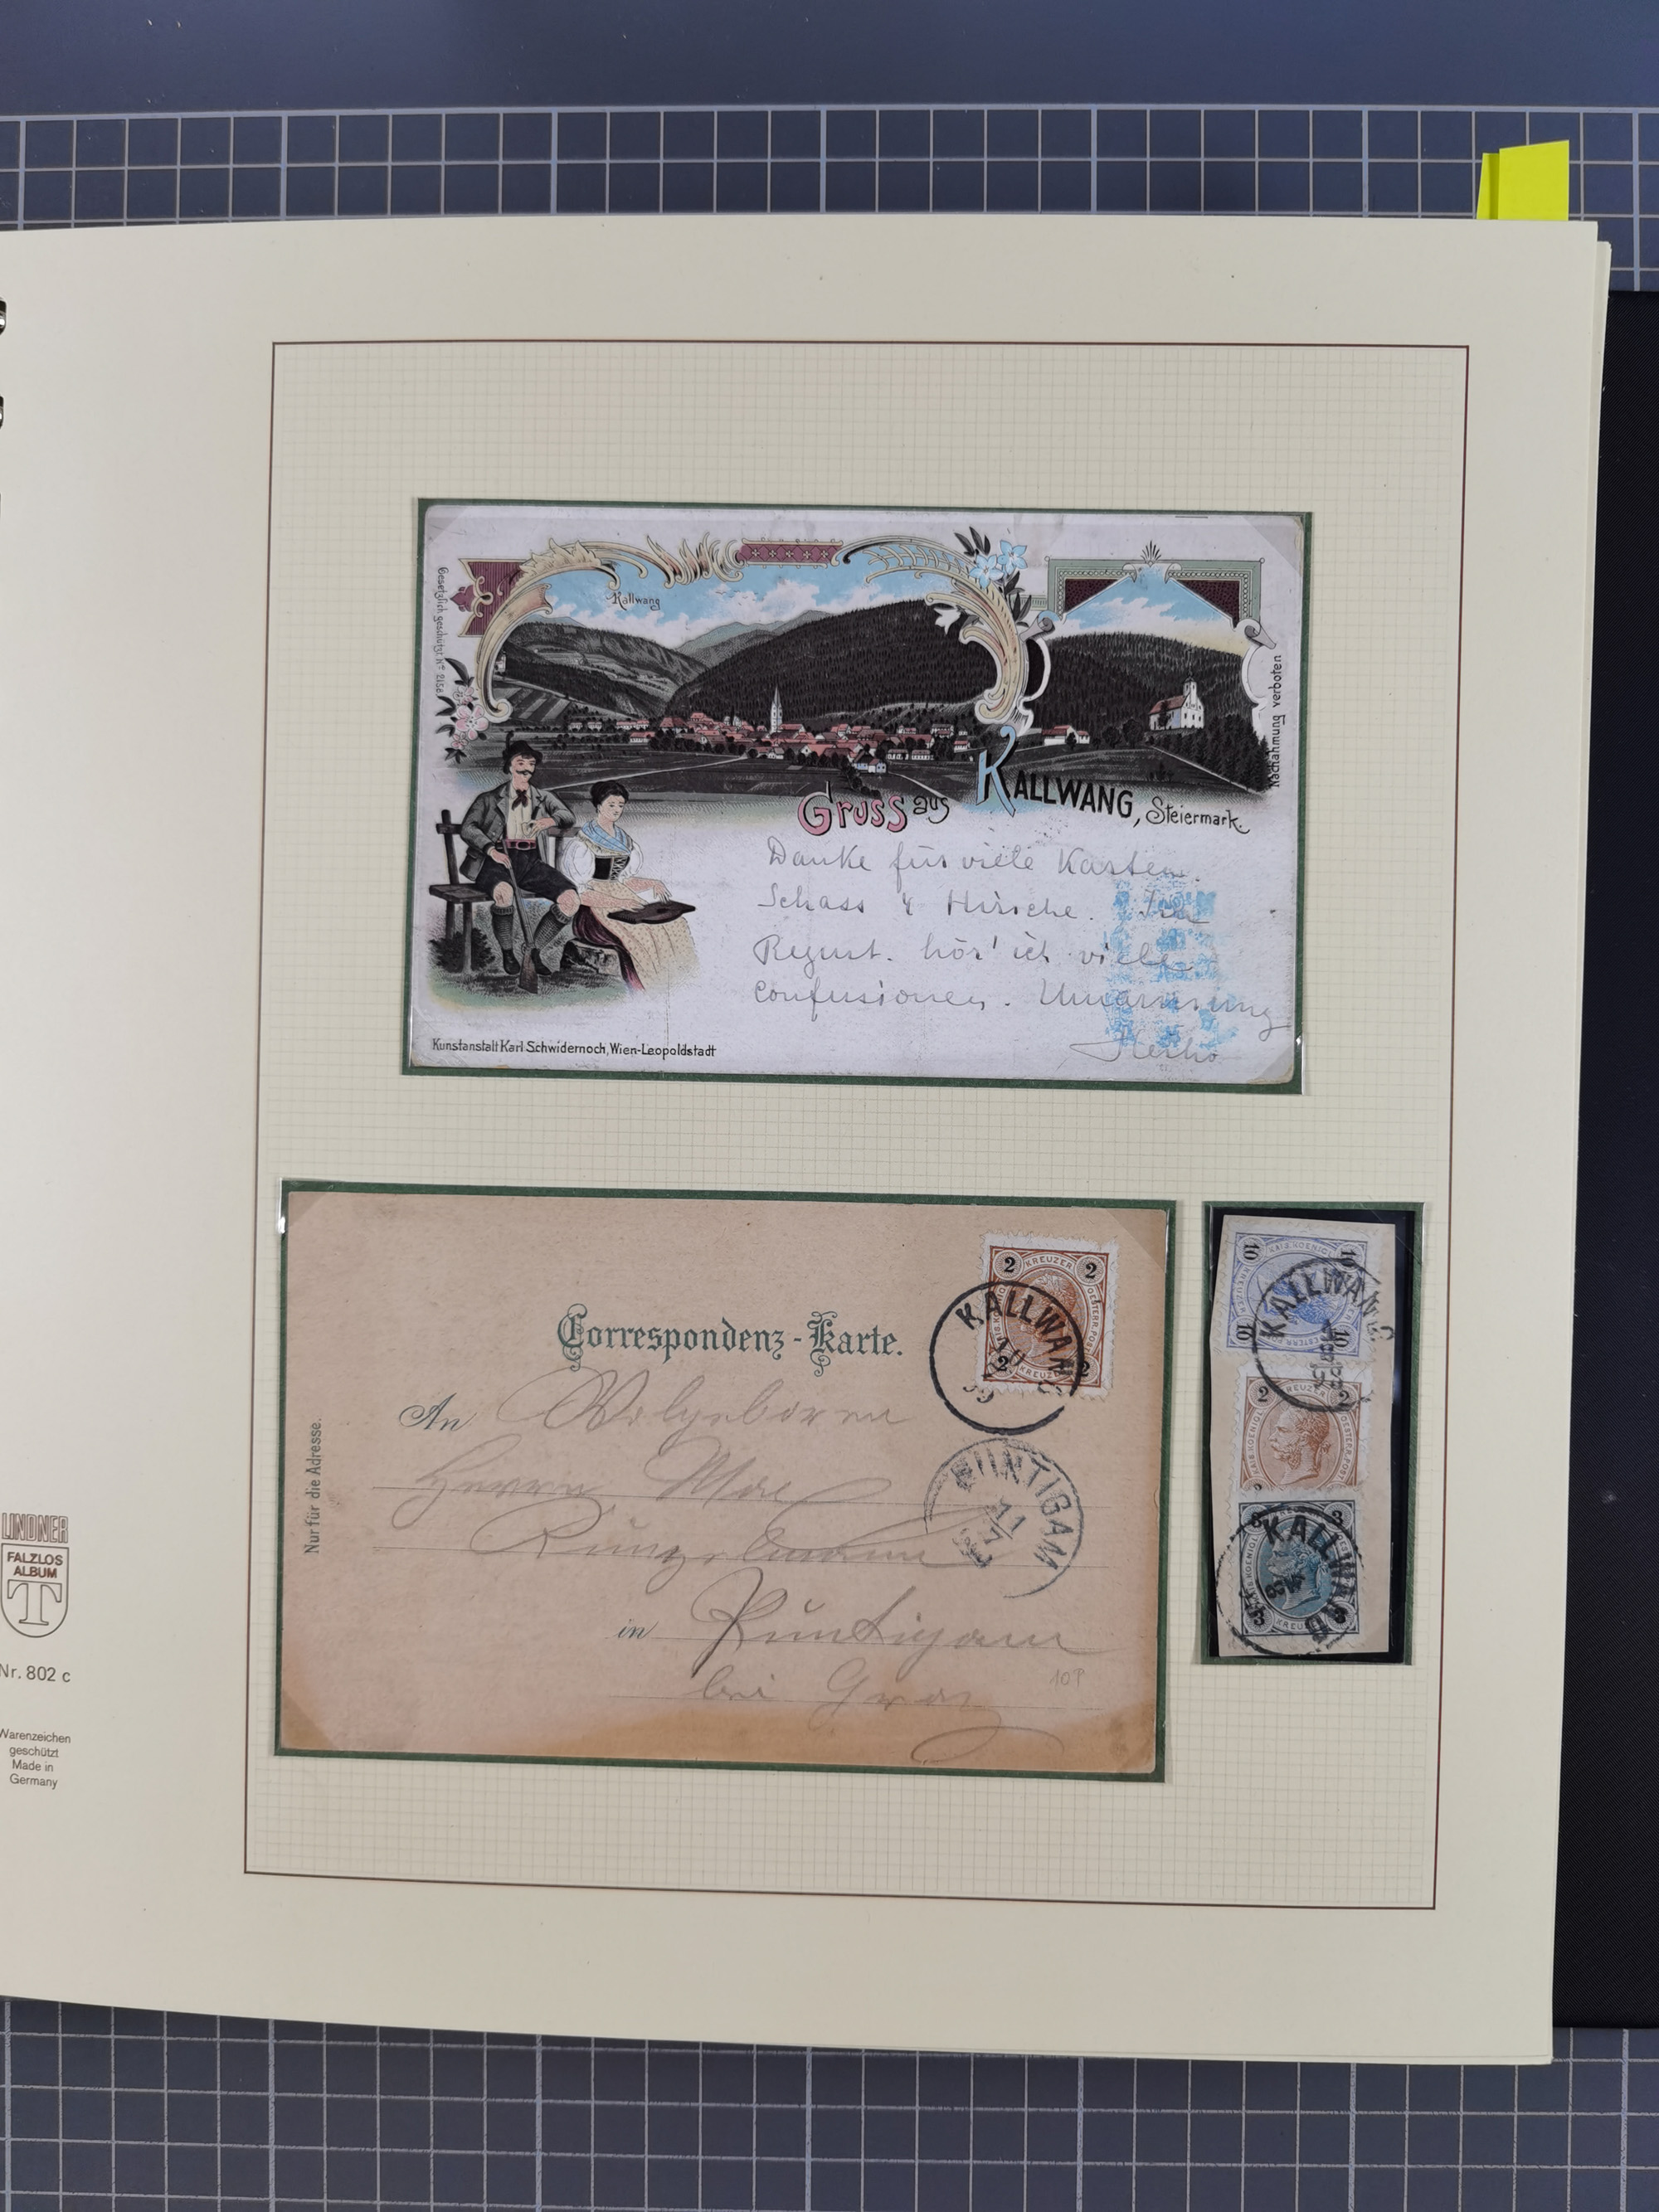 Kallwang
Gesetzlich geschützt No 2156
Nachahmung verboten
Gruss aus KALLWANG, Steiermark.
Danke für viele Karten.
Schoss 4 Hirsche.
hör' ich viele
Confusionen. Umarmung
Kunstanstalt Karl Schwidernoch, Wien-Leopoldstadt
2 KREUZER 2
KALLWANG
Correspondenz-Karte.
An
Herrn
PUNTIGAM
11
7
in Puntigam
bei Graz
10P
Nur für die Adresse.
10
KALLWANG
2 KREUZER 2
KAIS. KOENIGL. OESTERR. POST
3 3
KALLWANG
3 KREUZER 3
LINDNER
FALZLOS
ALBUM
T
Nr. 802 c
Warenzeichen
geschützt
Made in
Germany